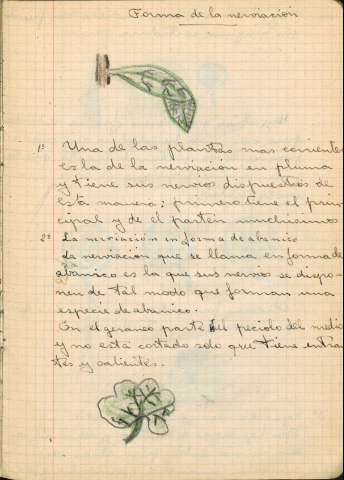 Forma de la nerviación
1º Una de las plantas mas corrientes
es la de la nerviación en pluma
y tiene sus nervios dispuestos de
esta manera: primero tiene el prin
cipal y de él parten muchisimos
2º La nerviación in forma de abanico
La nerviación que se llama en forma de
abanico es la que sus nervos se dispo-
nen de tal modo que forman una
especie de abanico.
En el geraneo parte del peciolo del medio
y no está cortado solo que tiene entran
tes y salientes.